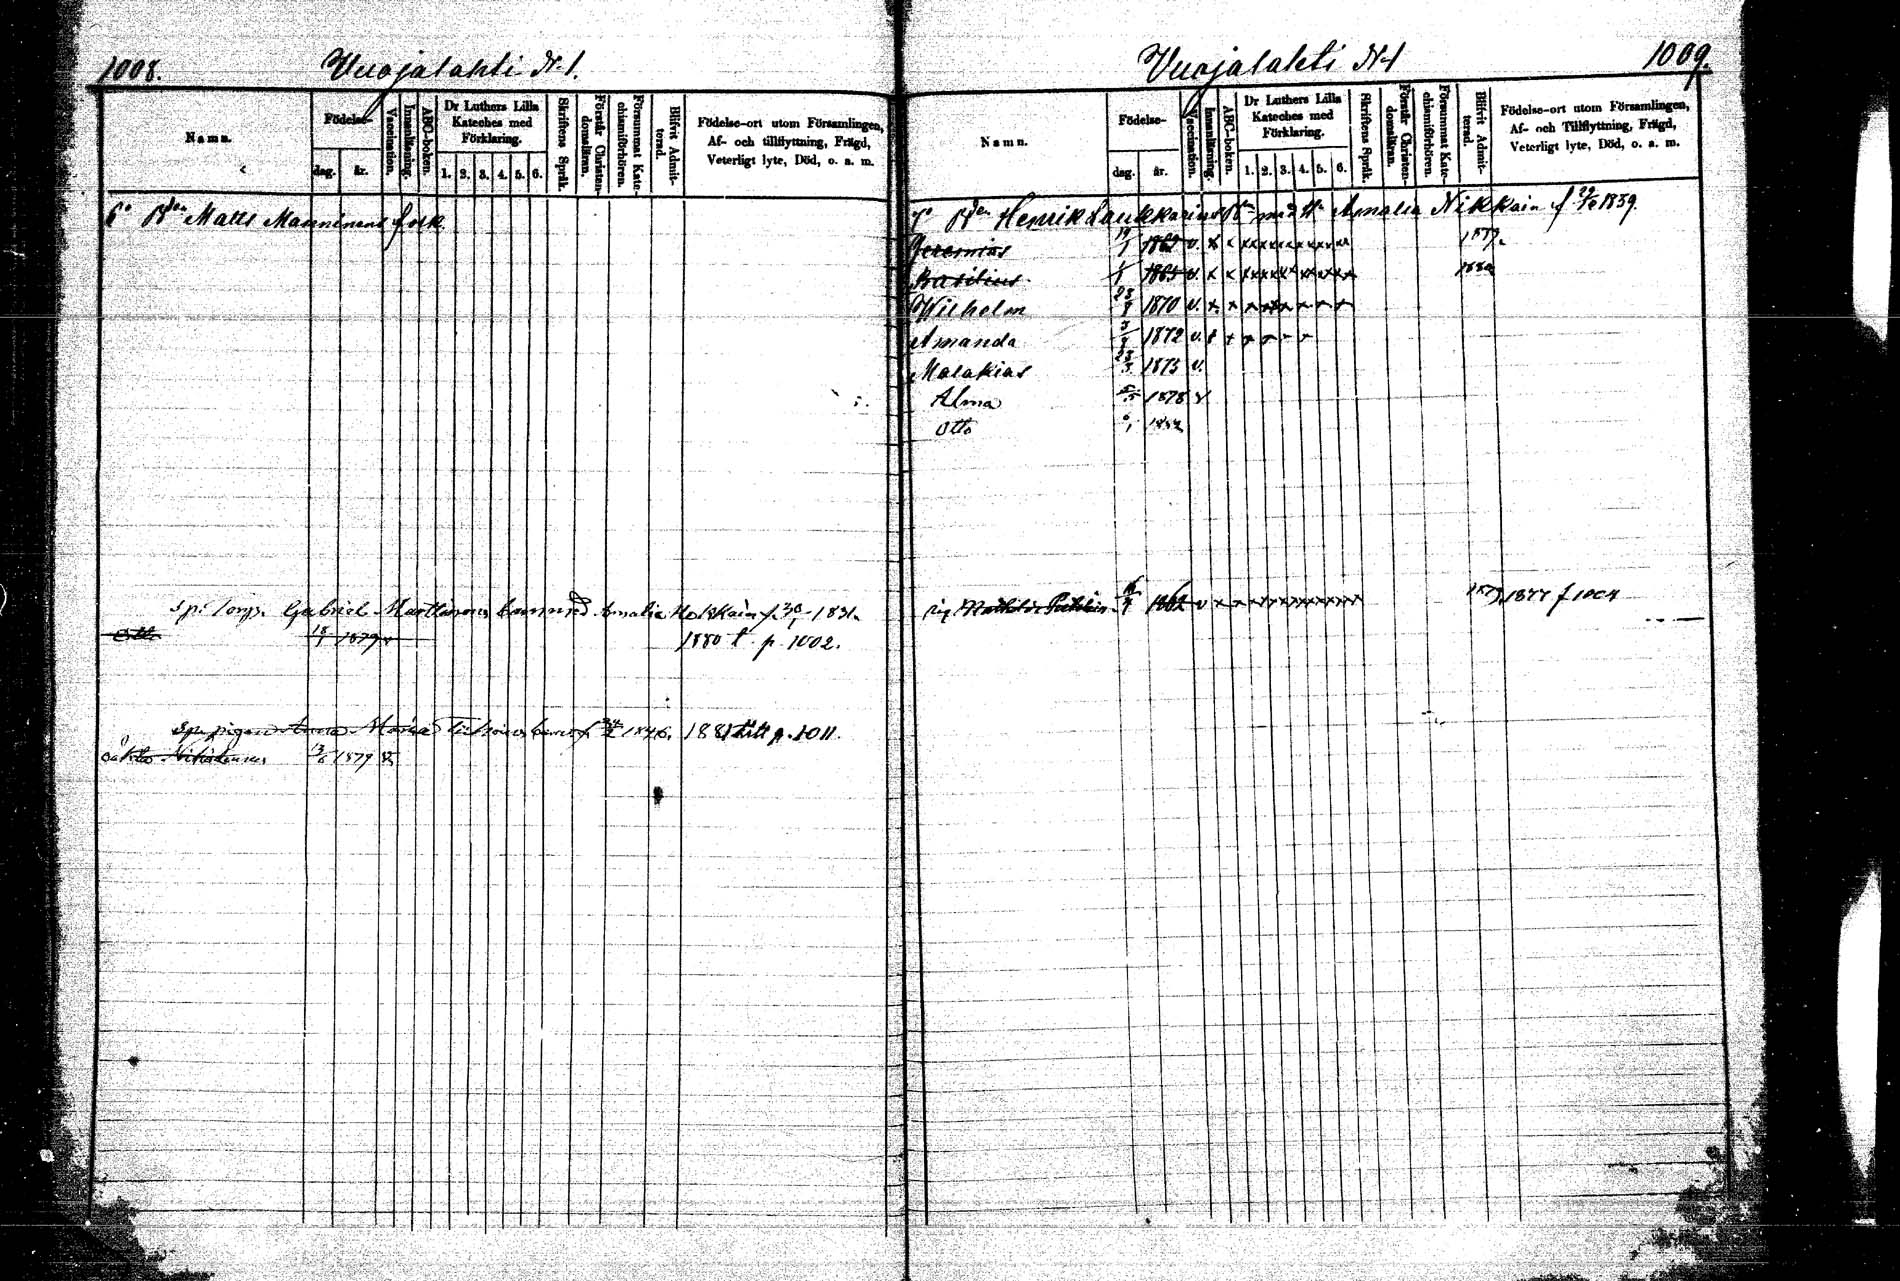 1008.
Vuojalahti N. 1.
Namn.
Födelse-
dag.
år.
Vaccination.
Innanläsning.
ABC-boken.
Dr Luthers Lilla Kateches med Förklaring.
1. 2. 3. 4. 5. 6.
Skriftens Språk.
Förstår Christendomsläran.
Försummat Katechismiförhören.
Blifvit Admitterad.
Födelse-ort utom Församlingen,
Af- och tillflyttning, Frägd,
Veterligt lyte, Död, o. a. m.
6° Bden Matts Manninens folk.
sp. torp. Gabriel Martinens barn med Amalia f. 1831.
Otto 18/1 1879 v
1880 t. p. 1002.
sp. pigan Anna Maria barn f. 1846. 1881 till p. 1011.
oäkta Nikodemus 13/6 1879 v.
Vuojalahti N 1
1009.
Namn.
Födelse-
dag.
år.
Vaccination.
Innanläsning.
ABC-boken.
Dr Luthers Lilla
Kateches med
Förklaring.
1. 2. 3. 4. 5. 6.
Skriftens Språk.
Förstår Christendomsläran.
Försummat Katechismiförhören.
Blifvit Admitterad.
Födelse-ort utom Församlingen,
Af- och Tillflyttning, Frägd,
Veterligt lyte, Död, o. a. m.
7° Bden Henrik Laukkarins Bn med H. Amalia Nikkain f 1839.
Jeremias 19/1 1862 v. x x xxxxxxxxxx 1879.
Basilius 1/1 1865 v. x x xxxxxxxxxx 1882
Wilhelm 23/9 1870 v. x x x xxx x x x
Amanda 1872 v. x x x x x x
Malakias 23/3 1875 v.
Alma 5/5 1878 v
Otto 6/1 1882
pig Mathilda 1862 v x x x xxxxxxxxx 1879. 1877 f 1004